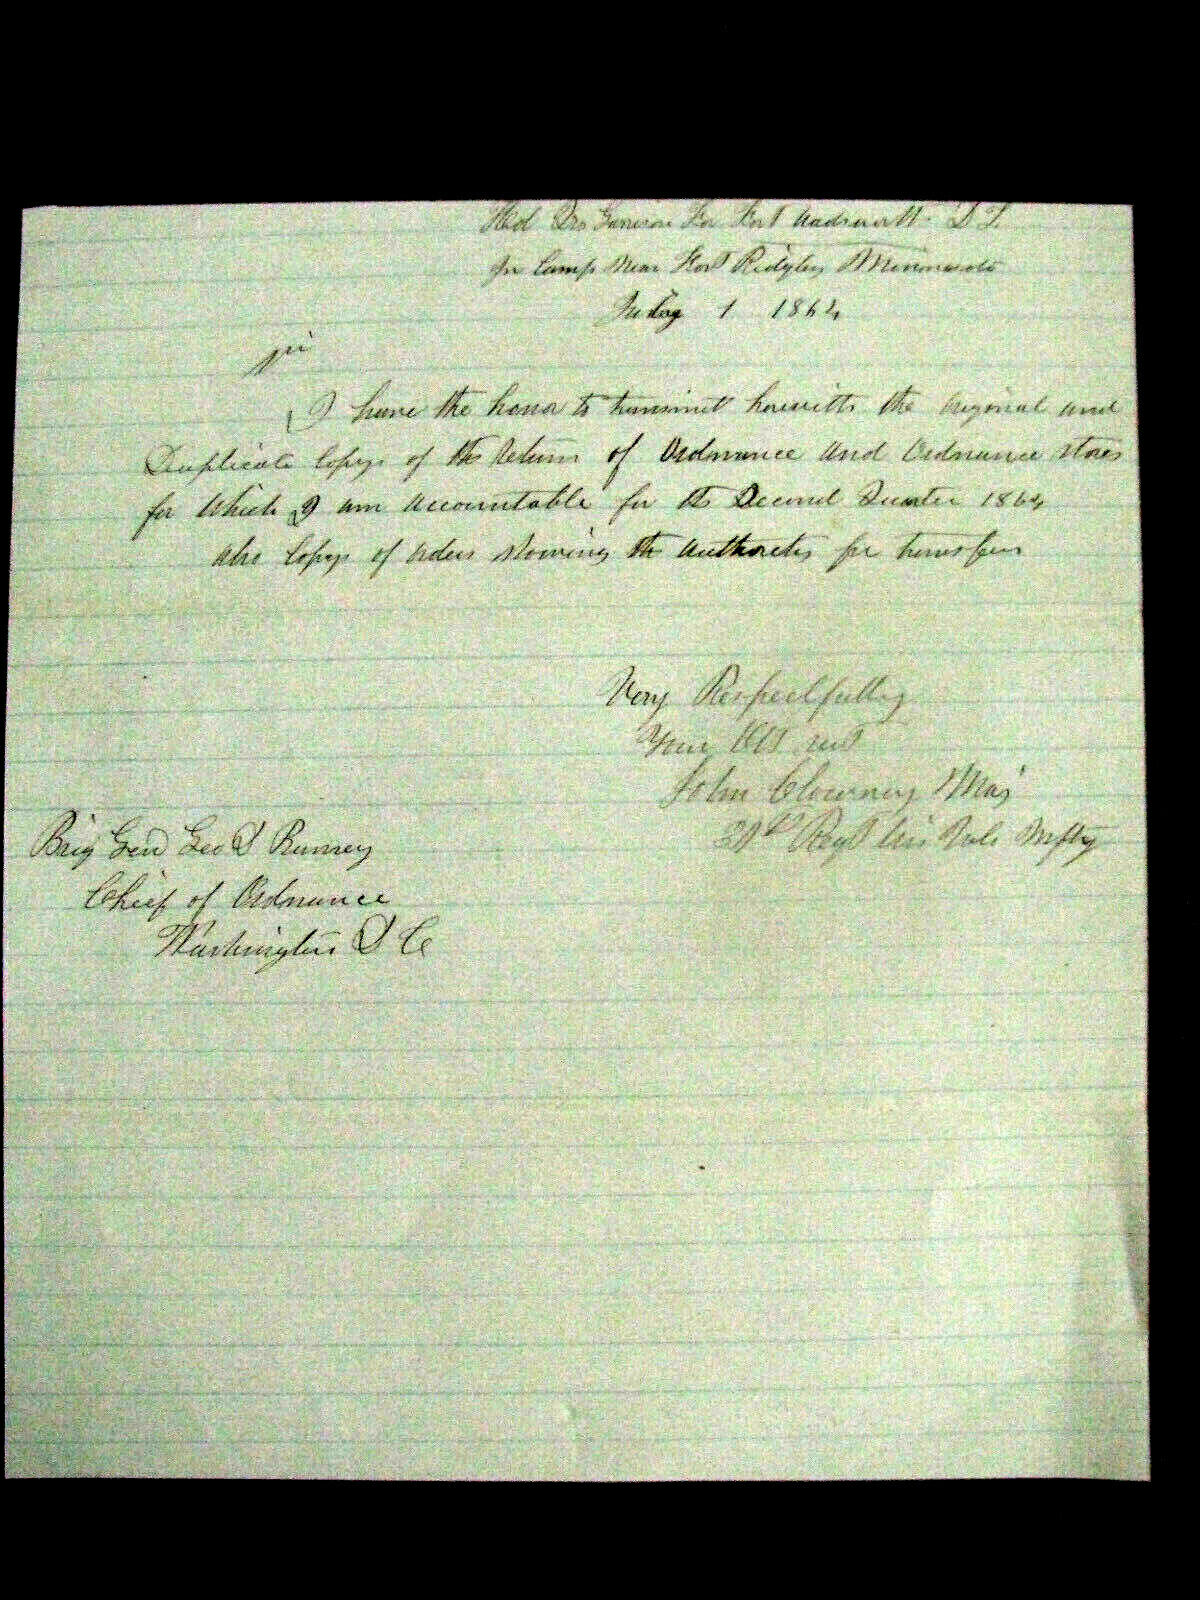 Hd Qrs Garrison For Fort Wadsworth D T
In Camp Near Fort Ridgley Minnesota
July 1 1864
Sir
I have the honor to transmit herewith the Orginal and
Duplicate Copys of the Return of Ordnance and Ordnance stores
for which I am accountable for the Second Quarter 1864
also Copys of orders showing the Authority for transfers
Very Respectfully
Your Obt svt
John Clowney Maj
30th Regt Wis Vols Infty
Brig Gen Geo D Ramsey
Chief of Ordnance
Washington D C